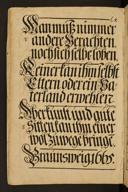 Man muß nimmer
andere Verachten
noch sich selbe loben.
Keiner kan ihm selbst
Eltern oder ein Va-
terland erwehlen.
Aber kunst und gute
Sitten kan ihm einer
wol zuwege bringe
Braunsweig 1665.